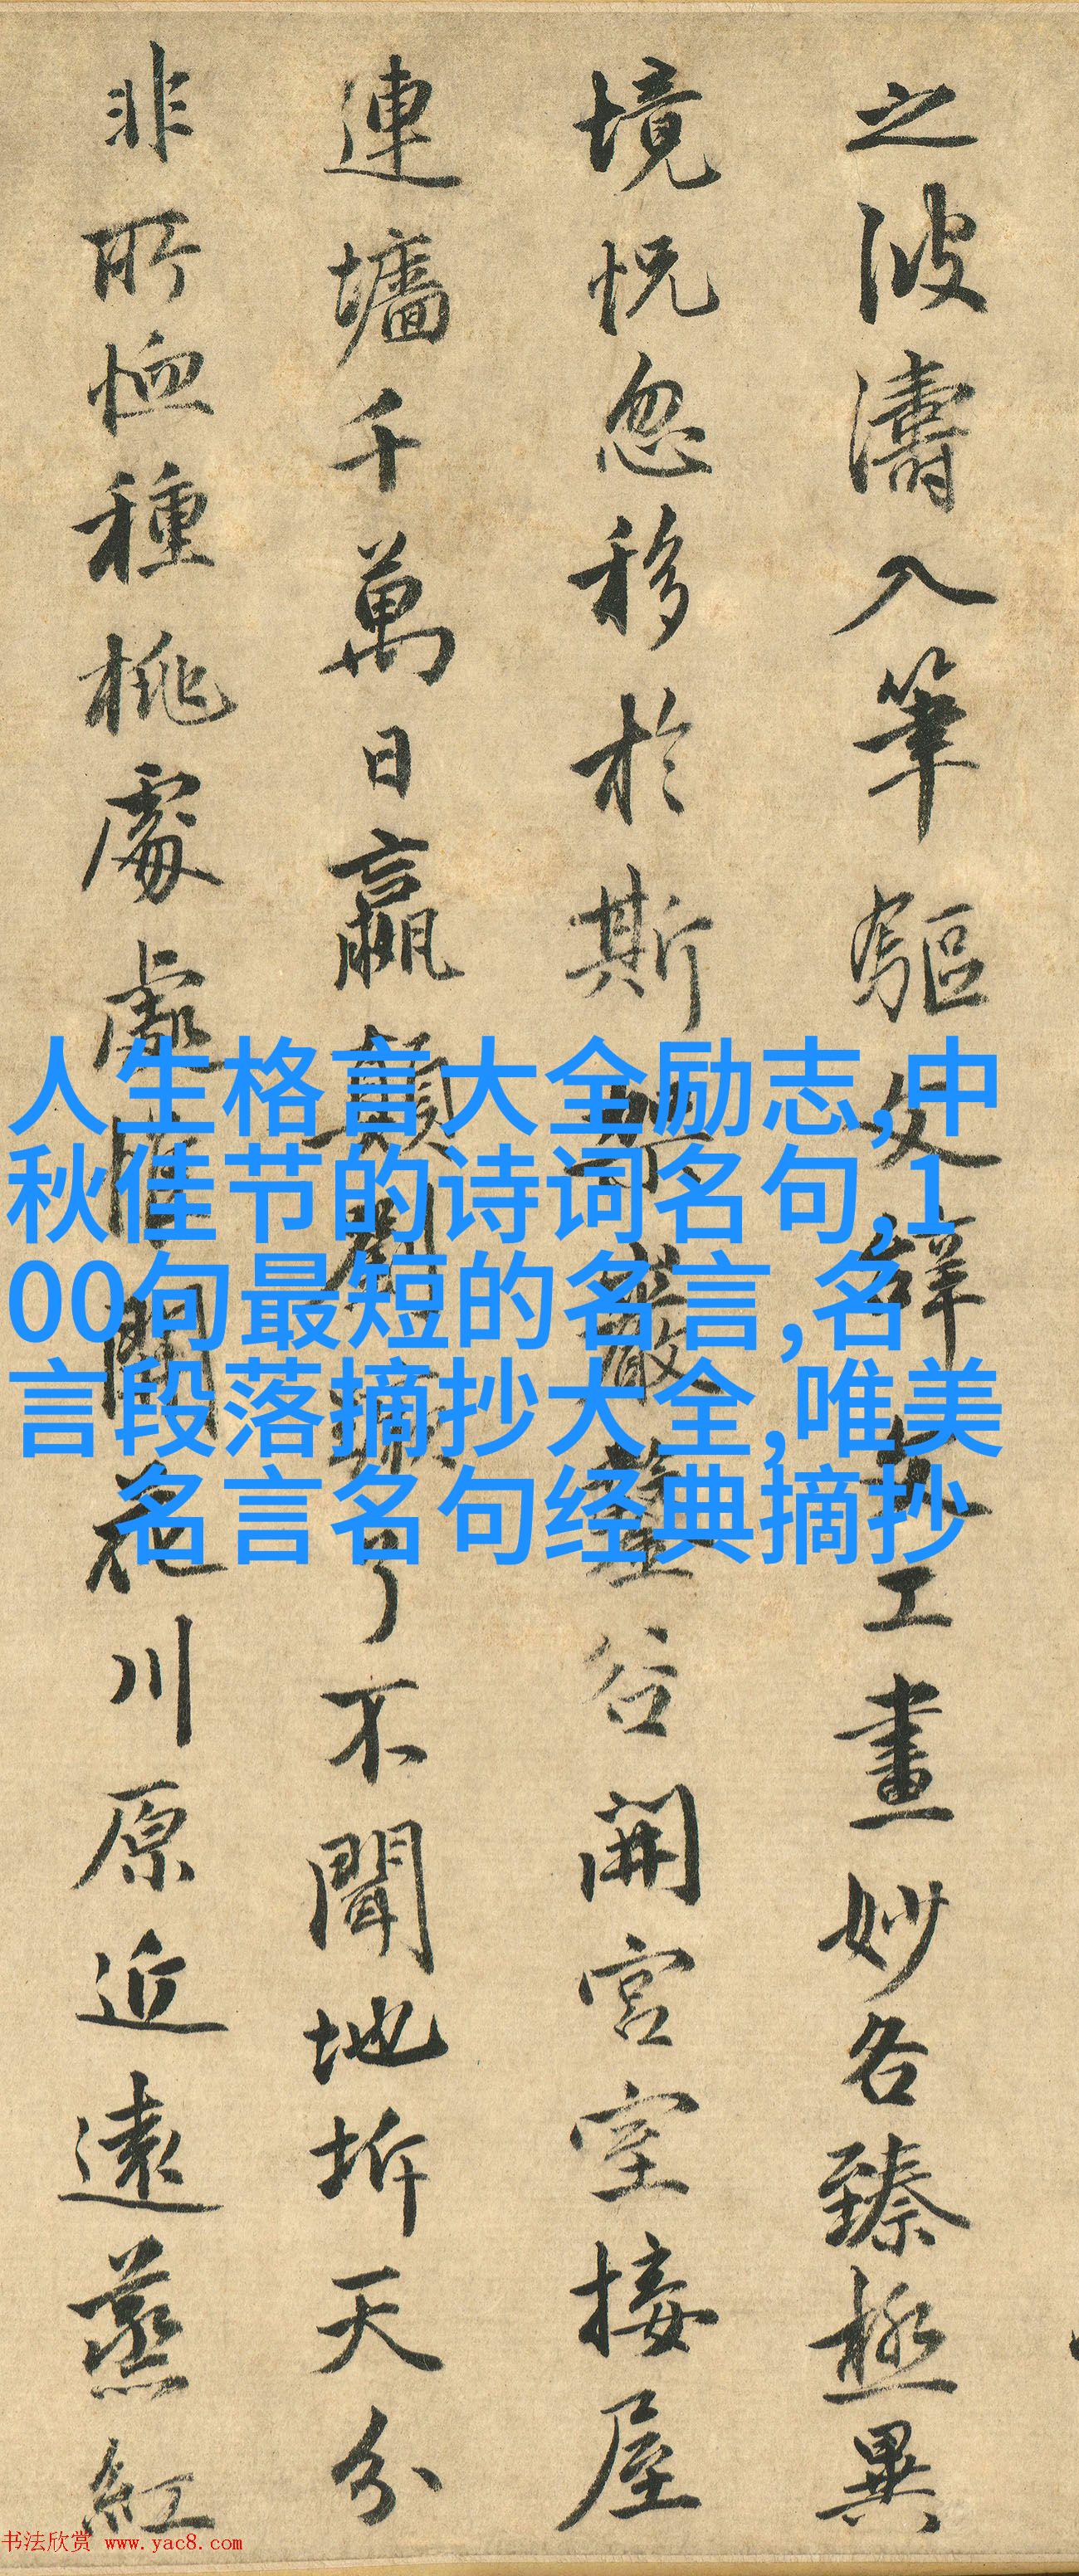 之波濤入筆驅文辭文工畫妙各臻極異
境恍忽移於斯架巖鑿谷開宮室接屋
連墻千萬日嬴顛劉蹶了不聞地坼天分
非所恤種桃處處惟開花川原近遠蒸紅
人生格言大全励志,中
秋佳节的诗词名句,1
00句最短的名言,名
言段落摘抄大全,唯美
名言名句经典摘抄
书法欣赏 www.yac8.com